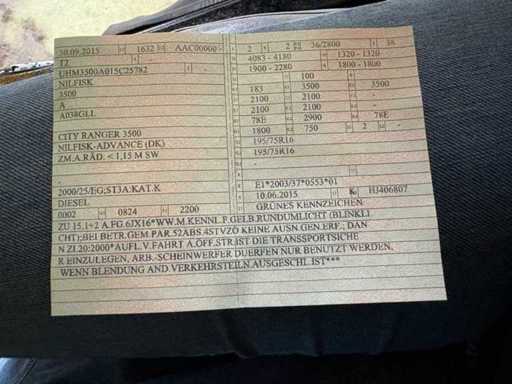 30.09.2015 1632 AAC00000 -
T2
UHM3500A015C25782
NILFISK
3500
A
A038GLL
CITY RANGER 3500
NILFISK-ADVANCE (DK)
ZM.A.RÄD. < 1,15 M SW
2000/25/EG;ST3A:KAT.K
DIESEL
0002 0824 2200
2 2 36/2800 36
4083 - 4180 1320 - 1320
1900 - 2280 1800 - 1800
100
183 3500 3500
2100 2100 -
2100 2100 -
78E 2900 78E
1800 750 2 -
195/75R16
195/75R16
E1*2003/37*0553*01
10.06.2015 K HJ406807
GRÜNES KENNZEICHEN
ZU 15.1+2 A.FG.6JX16*WW.M.KENNL.F.GELB.RUNDUMLICHT (BLINKLI
CHT);BEI BETR.GEM.PAR.52ABS.4STVZO KEINE AUSN.GEN.ERF., DAN
N ZI.20:2000*AUFL.V.FAHRT A.ÖFF.STR.IST DIE TRANSSPORTSICHE
R EINZULEGEN, ARB.-SCHEINWERFER DUERFEN NUR BENUTZT WERDEN,
WENN BLENDUNG AND VERKEHRSTEILN.AUSGESCHL.IST***